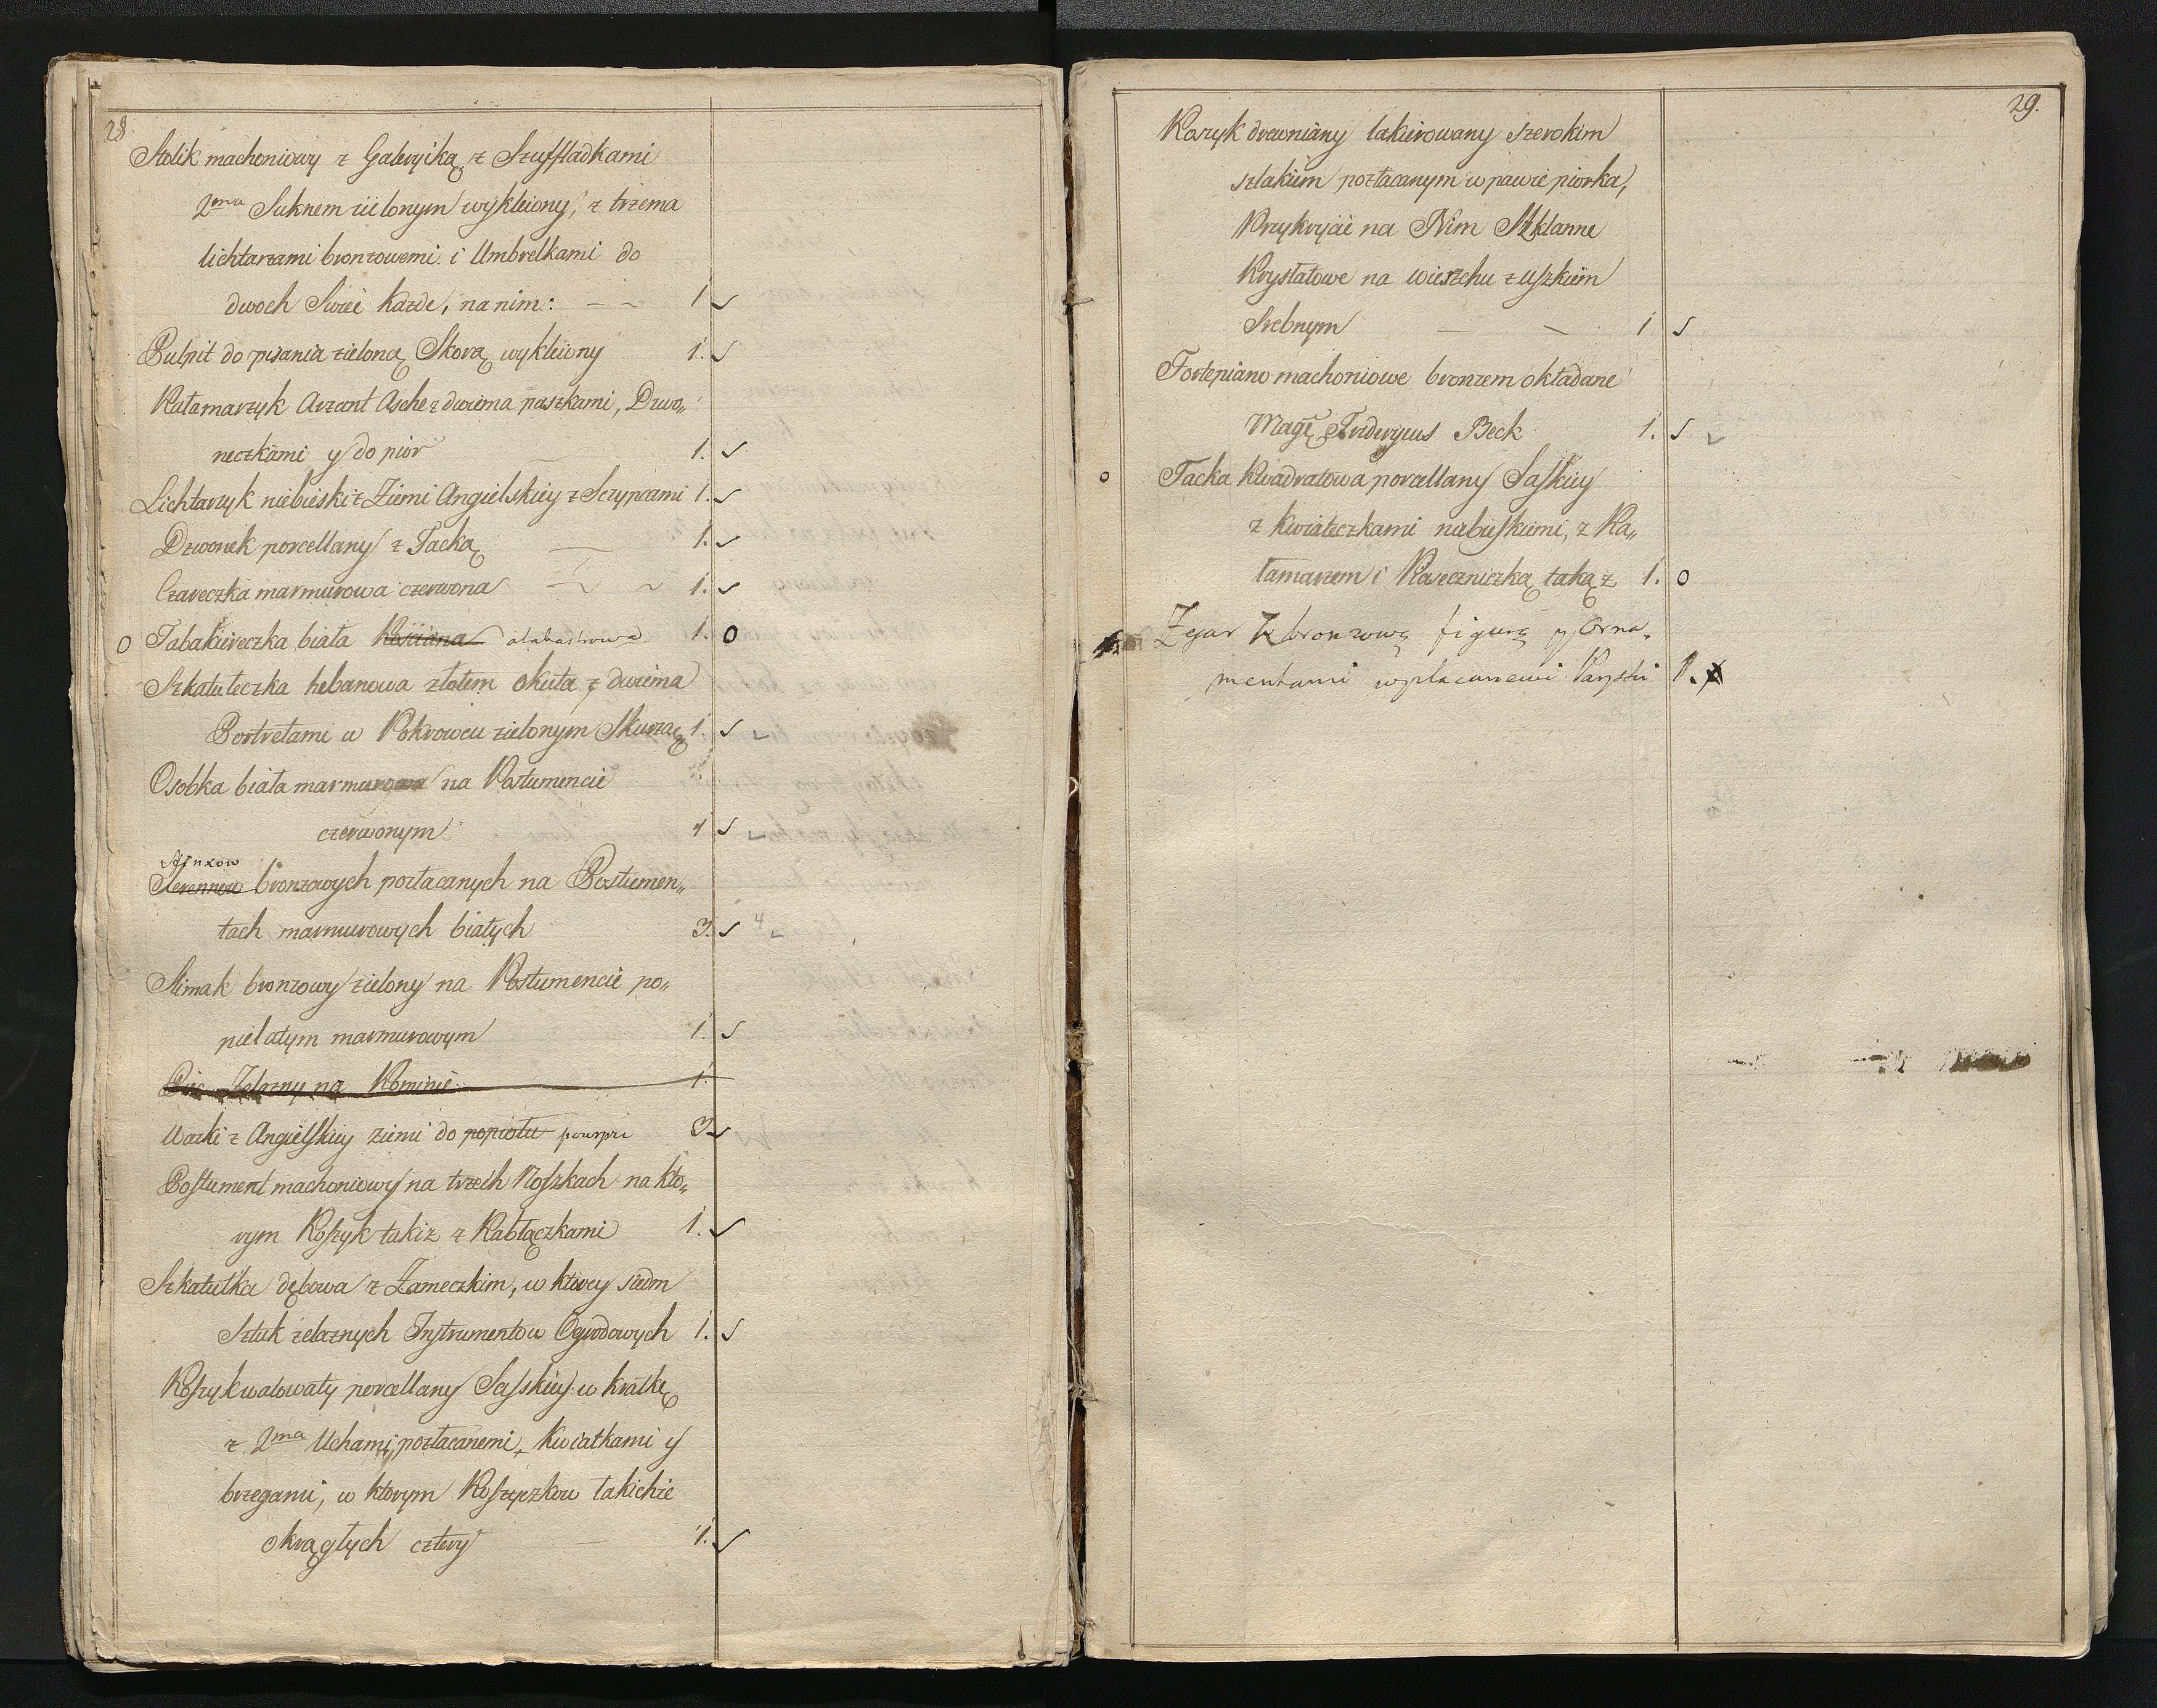 28
Stolik machoniowy z Galeryiką z Szuffladkami
2ma Suknem zielonym wykleiony, z trzema
lichtarzami bronzowemi i Umbrelkami do
dwoch Swiec każde, na nim: — ~ 1 ✓
Pulpit do pisania zieloną Skorą wykleiony 1. ✓
Kałamarzyk Arzant Asche z dwiema paszkami, Dzwo„
neczkami y do pior 1. ✓
Lichtarzyk niebieski z Ziemi Angielskiey z Sczypcami 1. ✓
Dzwonek porcellany z Tacką — 1. ✓
Czareczka marmurowa czerwona — ~ 1. ✓
o Tabakiereczka biała Kościana alabastrowa 1. o
Szkatułeczka hebanowa złotem okuta z dwiema
Portretami w Pokrowcu zielonym Skurzą 1 ✓
Osobka biała marmurowa na Postumencie
czerwonym 1 ✓
Sfinxow
bronzowych pozłacanych na Postumen„
tach marmurowych białych 3. ✓ 4
Slimak bronzowy zielony na Postumencie po„
pielatym marmurowym 1. ✓
Piec Żelazny na Kominie 1.
Wazki z Angielskiey ziemi do popiołu pourpri 3 ✓
Postument machoniowy na trzech Noszkach na kto„
rym Koszyk takiż z Kabłączkami 1. ✓
Szkatułka dębowa z Zameczkim, w ktorey siedm
Sztuk żelaznych Instrumentow Ogrodowych 1. ✓
Koszyk walowaty porcellany Saskiey w kratkę
z 2ma Uchami, pozłacanemi, Kwiatkami y
brzegami, w ktorym Koszyczkow takichże
okrągłych cztery — 1. ✓
29.
Koszyk drewniany lakierowany szerokim
szlakiem pozłacanym w pawie piorka,
Przykrycie na Nim Szklanne
Kryształowe na wierzchu z uszkiem
Srebnym — — 1 ✓
Fortepiano machoniowe bronzem okładane
Fridericus Beck 1. ✓
o Tacka Kwadratowa porcellany Saskiey
z kwiateczkami niebieskiemi, z Ka„
łamarzem i Piaseczniczką taką ż 1. o
Zegar z bronzową figurą y Orna„
mentami wyzłacanemi Paryski 1.